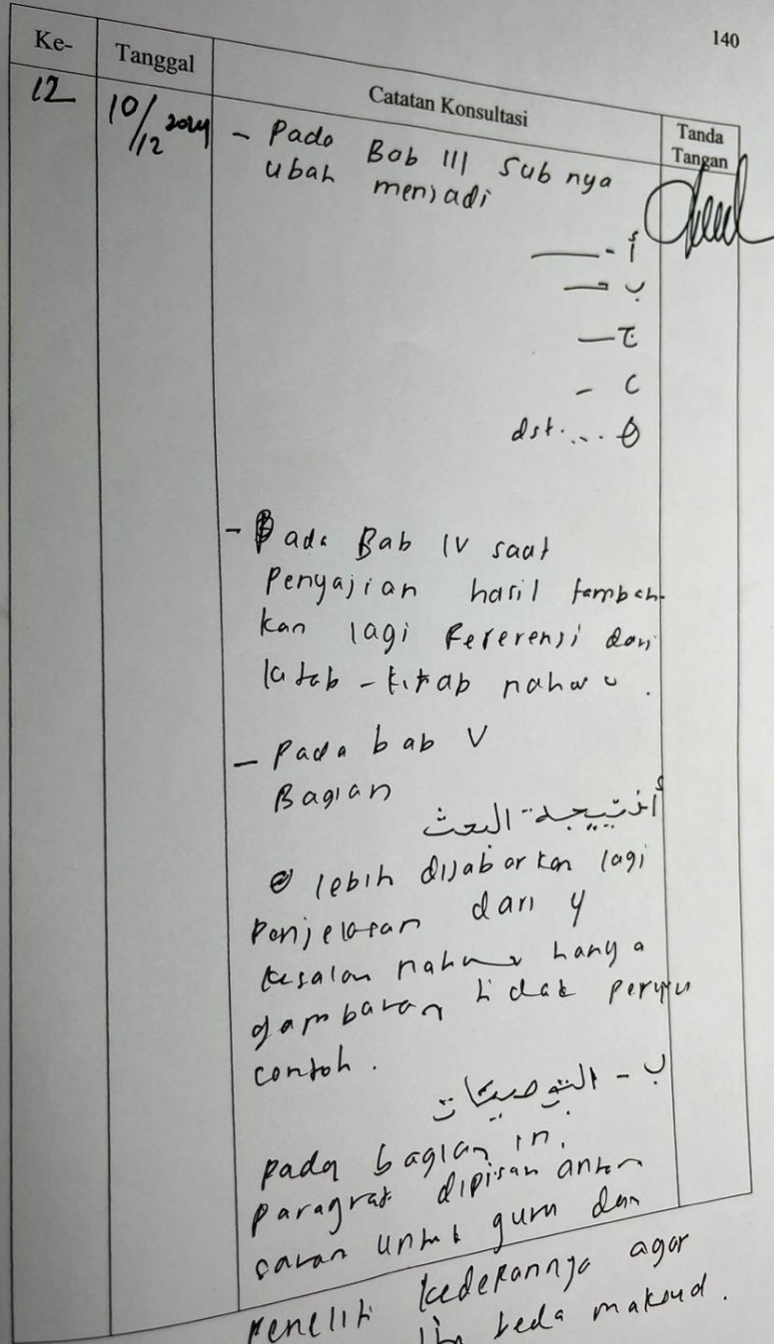 140
Ke-
Tanggal
Catatan Konsultasi
Tanda
Tangan
12
10/12 2024
- Pada Bab III Sub nya
ubah menjadi
أ - ـــ
ب - ـــ
ج ـــ
د -
dst.... ه
- Pada Bab IV saat
Penyajian hasil tambah-
kan lagi Referensi dari
kitab - kitab nahwu.
- Pada bab V
Bagian
أ. نتيجة البحث
lebih dijabarkan lagi
Penjelasan dari 4
kesalan nahwu hanya
gambaran tidak perlu
contoh.
ب - التوصيات
pada bagian ini
paragraf dipisah antara
saran untuk guru dan
peneliti kedepannya agar
beda maksud.